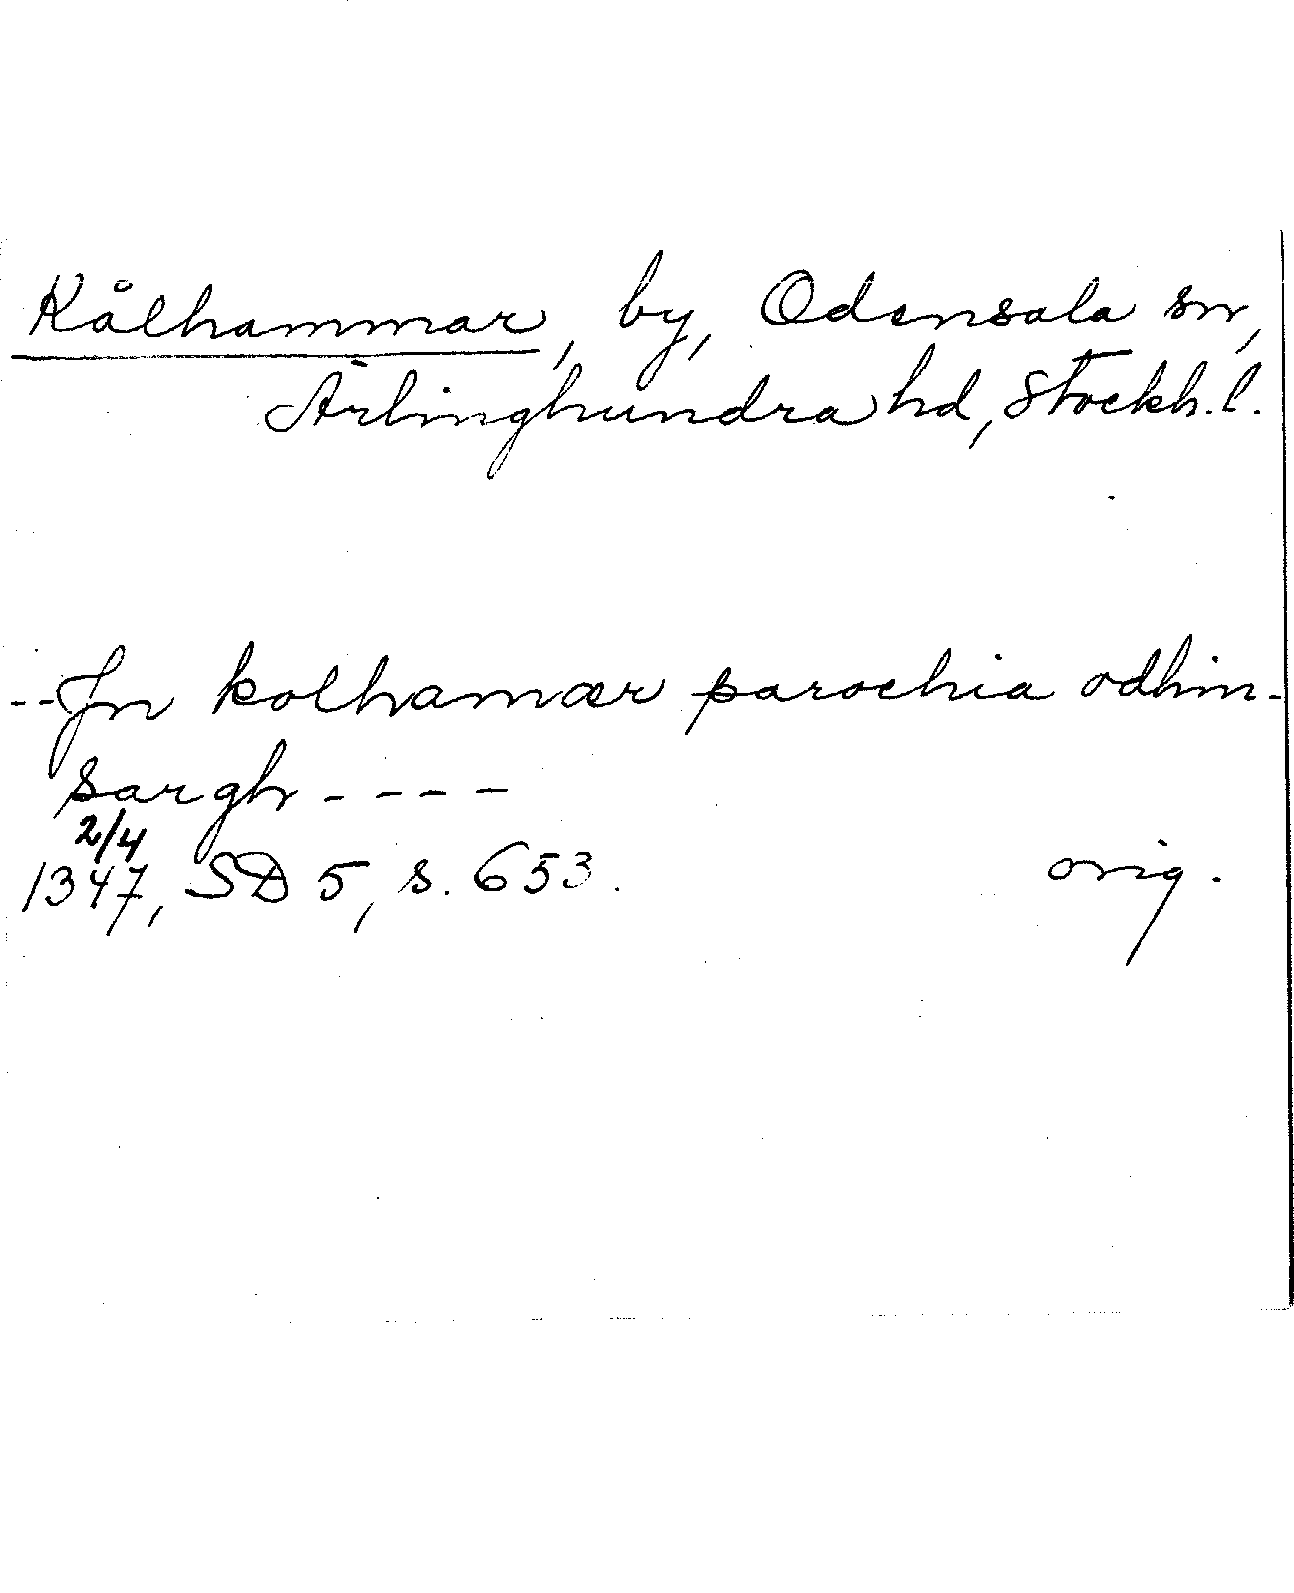 Kålhammar, by, Odensala sn,
Ärlinghundra hd, Stockh. l.
--Jn kolhamær parochia odhin-
sargh ----
2/4
1347, SD 5, s. 653. orig.